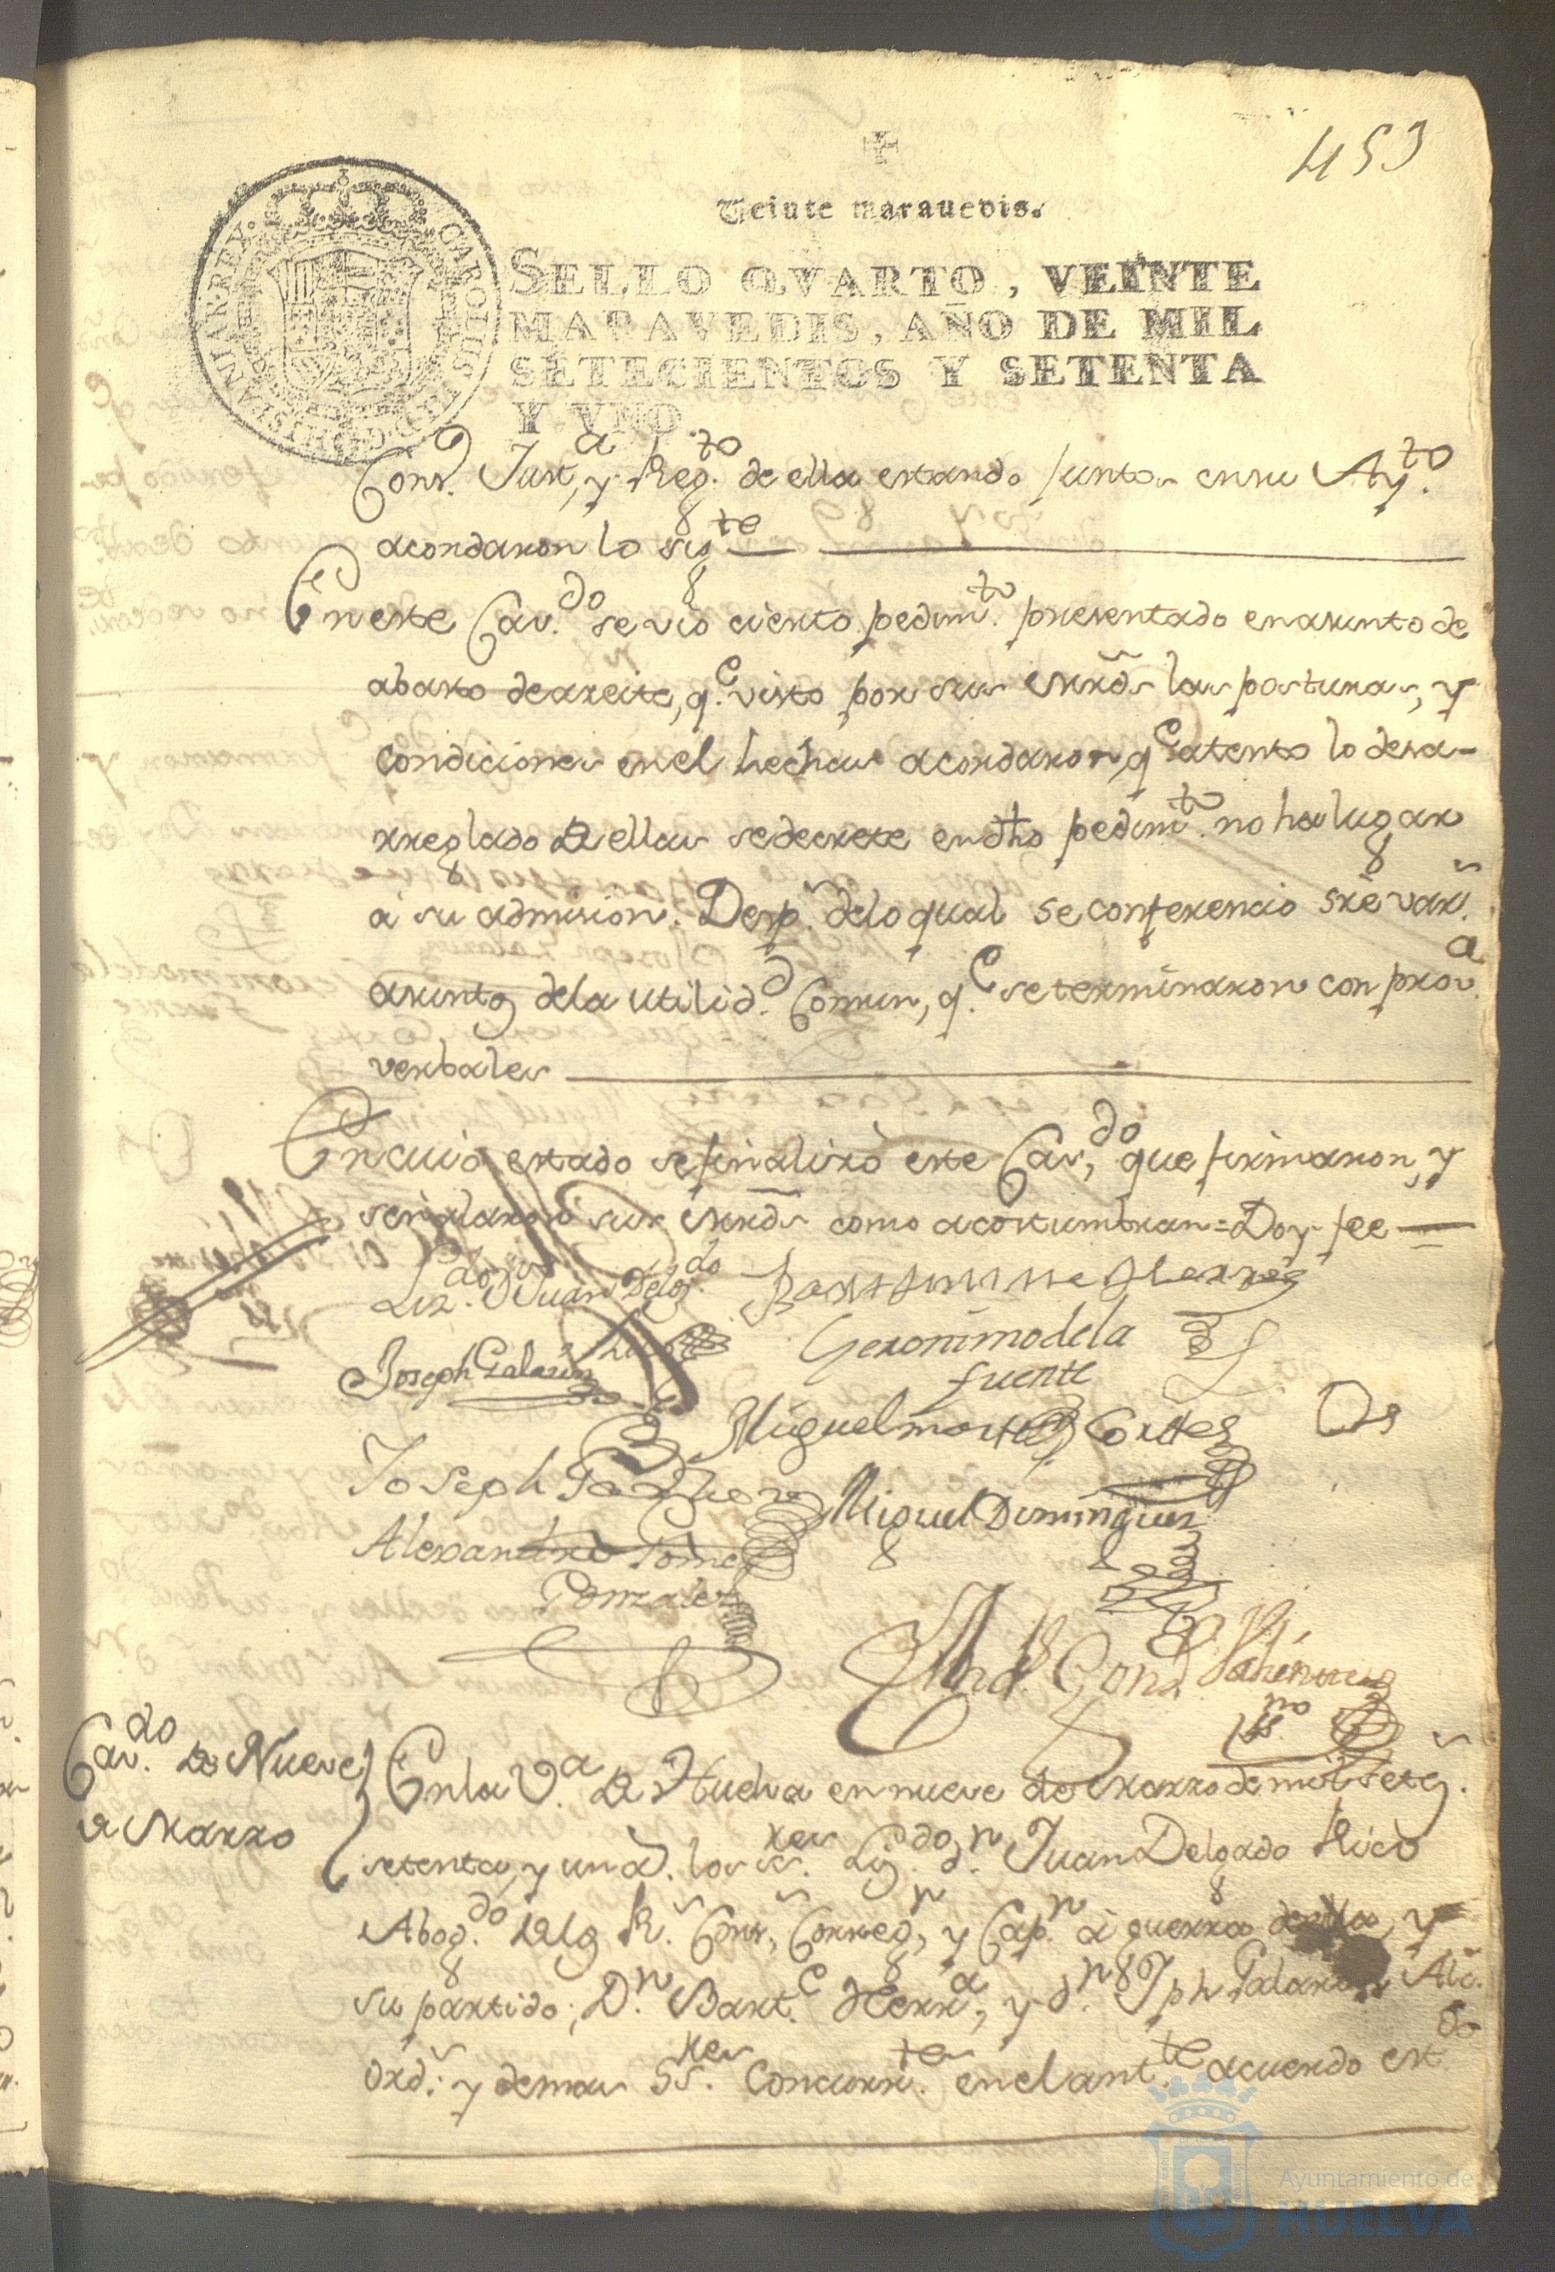 453
Veinte marauedis.
SELLO QVARTO, VEINTE
MARAVEDIS, AÑO DE MIL
SETECIENTOS Y SETENTA
Y VNO.
CAROLUS III D G HISPANIAR REX
Cons. Just.a y Reg.to de ella estando juntos en su Ay.to
acordaron lo sig.te
En este Cav.do se vió cierto pedim.to presentado en asunto de
abasto de azeite, q.e visto por sus mrds las posturas, y
condiciones en el hechas acordaron, q.e atento lo desa-
rreglado de ellas se decrete en dho pedim.to no ha lugar
à su admision. Desp.s de lo qual se conferenció sre var.s
asuntos de la utilid.d Comun, q.e se terminaron con prov.a
verbales
En cuio estado se finalizò este Cav.do que firmaron, y
señalaron sus mrds como acostumbran = Doy fee
Liz.do Dn Juan Delg.do
Rico
Barttme Herrera
Joseph Galarza
Geronimo de la
fuente
Miguel Cortes
Joseph
Miguel Dominguez
Alexandro Gomez
Gonzalez
Cav.do de Nueve
de Marzo
En la V.a de Huelva en nueve de Marzo de mil setes.
setenta, y un a. los ss.res Liz.do d.n Juan Delgado Rico
Abog.do de los R.s Cons.s, Correg.r, y Cap.n à guerra de ella, y
su partido; D.n Bart.e Herr.a, y d.n Jph Galarza Alc.
Ord.s y demas SS.res Concurr.tes en el ant.te acuerdo est.do
Ayuntamiento de
HUELVA